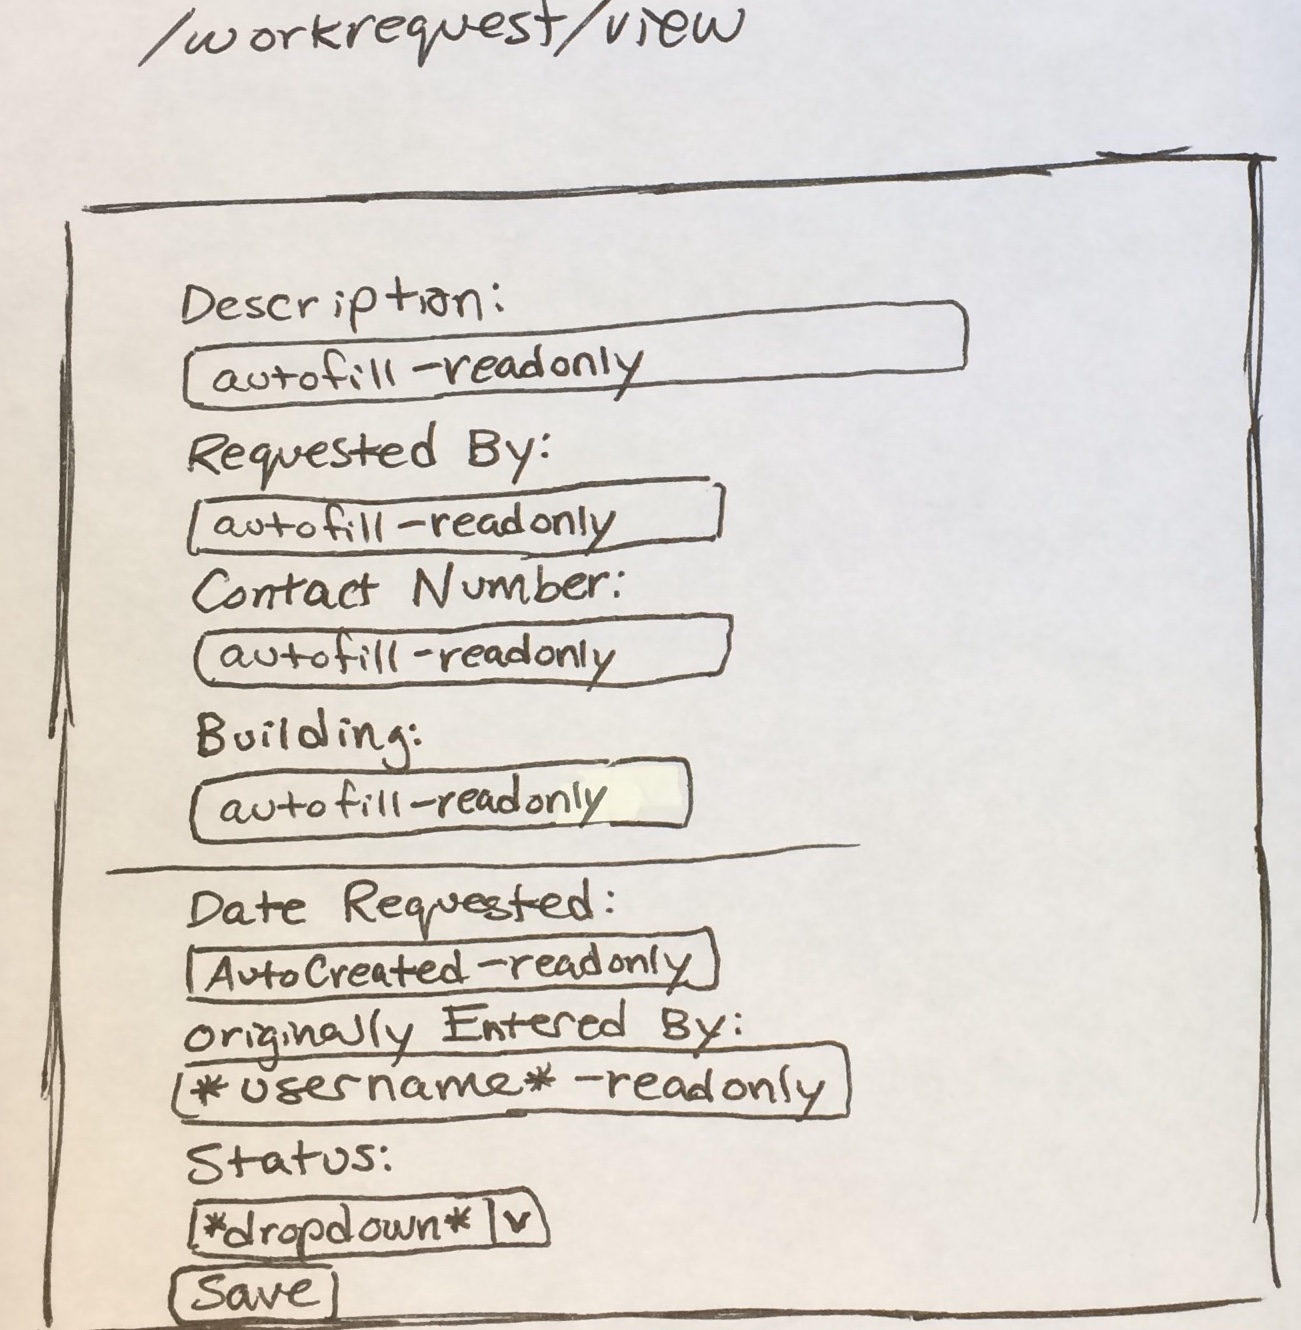 /workrequest/view
Description:
autofill-readonly
Requested By:
autofill-readonly
Contact Number:
autofill-readonly
Building:
autofill-readonly
Date Requested:
AutoCreated-readonly
originally Entered By:
*username*-readonly
Status:
*dropdown* v
Save